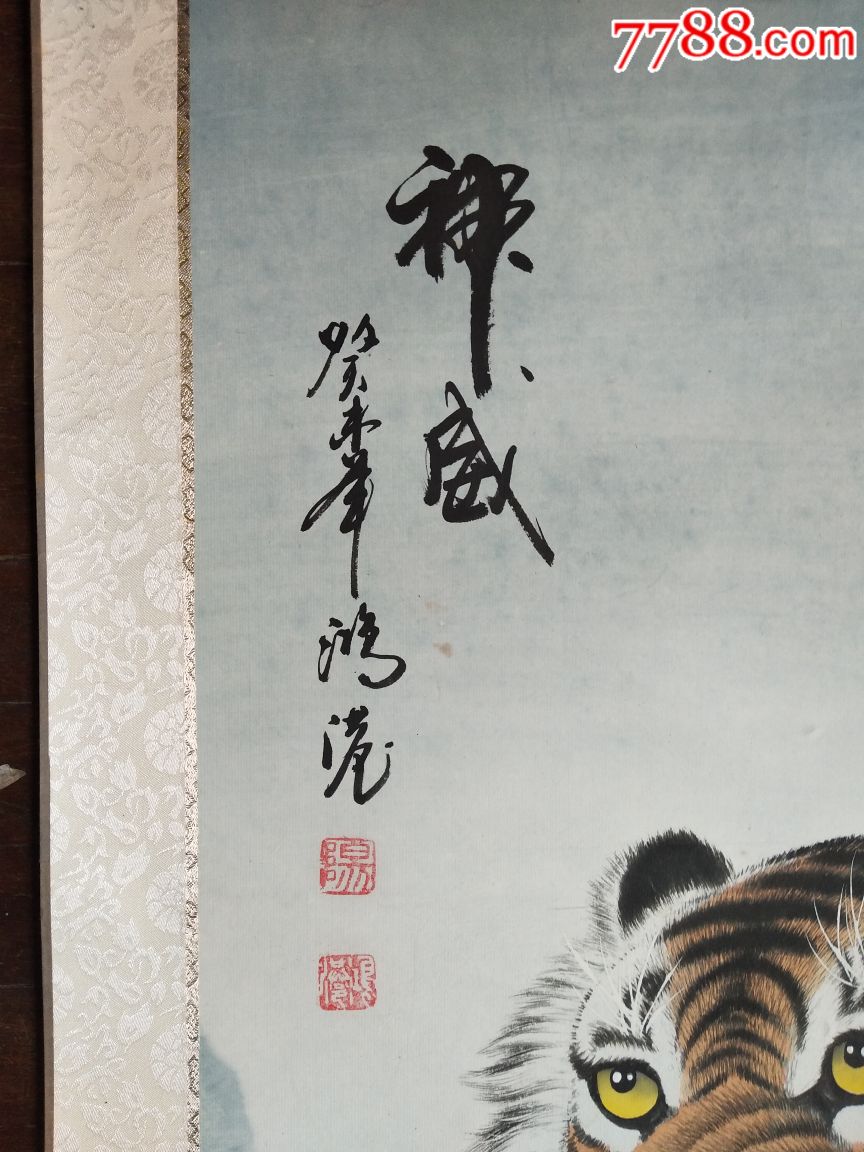 7788.com
神威
癸未年鸿港